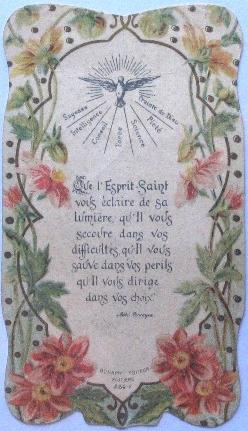 Sagesse
Intelligence
Conseil
Force
Science
Piété
Crainte de Dieu
Que l'Esprit-Saint
vous éclaire de sa
lumière, qu'Il vous
secoure dans vos
difficultés, qu'Il vous
sauve dans vos périls
qu'Il vous dirige
dans vos choix.
Abbé Perreyve